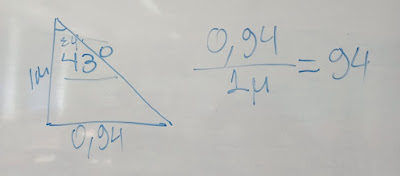 43°
1μ
0,94
0,94 / 1μ = 94